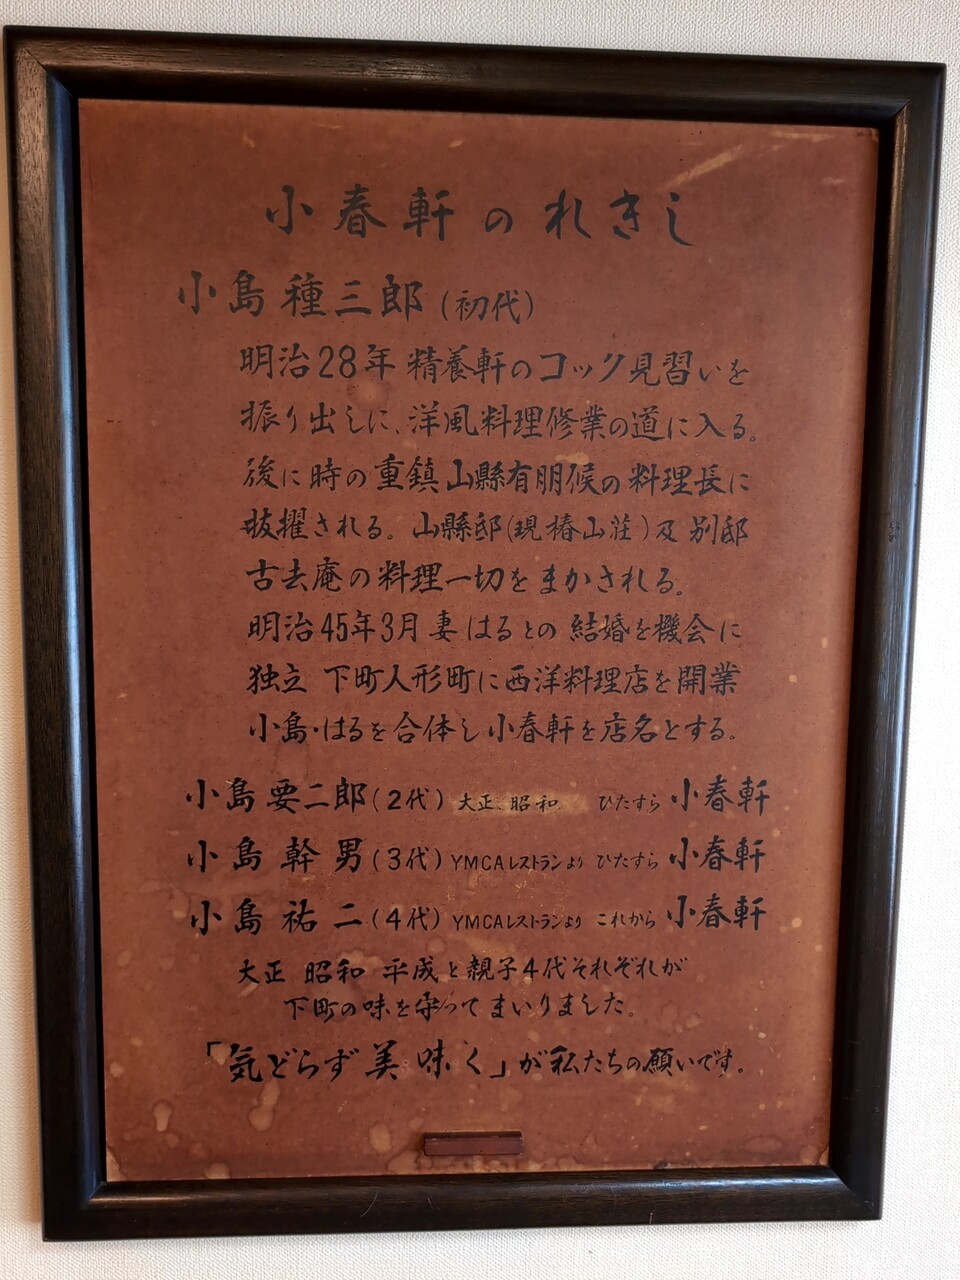 小春軒のれきし
小島種三郎(初代)
明治28年 精養軒のコック見習いを
振り出しに、洋風料理修業の道に入る。
後に時の重鎮山縣有朋候の料理長に
抜擢される。山縣邸(現椿山荘)及別邸
古去庵の料理一切をまかされる。
明治45年3月妻はるとの結婚を機会に
独立 下町人形町に西洋料理店を開業
小島・はるを合体し小春軒を店名とする。
小島要二郎(2代) 大正、昭和 ひたすら 小春軒
小島幹男(3代) YMCAレストランより ひたすら 小春軒
小島祐二(4代) YMCAレストランより これから 小春軒
大正 昭和 平成と親子4代それぞれが
下町の味を守ってまいりました。
「気どらず美味く」が私たちの願いです。